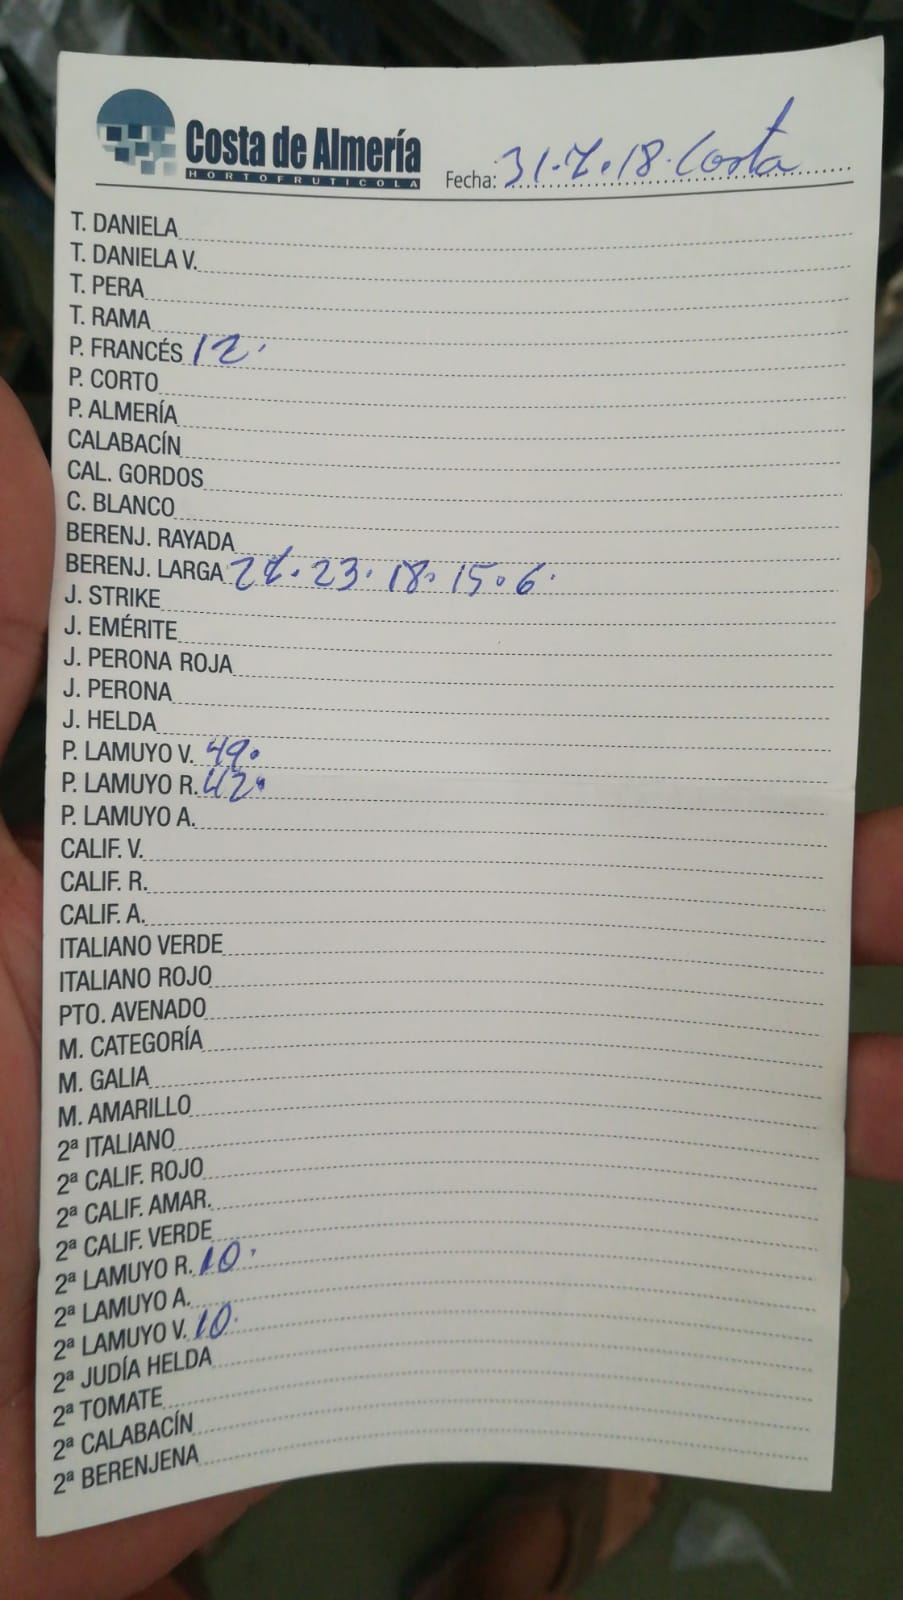 Costa de Almería
HORTOFRUTICOLA
Fecha: 31·7·18· Costa
T. DANIELA
T. DANIELA V.
T. PERA
T. RAMA
P. FRANCÉS 12·
P. CORTO
P. ALMERÍA
CALABACÍN
CAL. GORDOS
C. BLANCO
BERENJ. RAYADA
BERENJ. LARGA 27· 23· 18· 15· 6·
J. STRIKE
J. EMÉRITE
J. PERONA ROJA
J. PERONA
J. HELDA
P. LAMUYO V. 49·
P. LAMUYO R. 42·
P. LAMUYO A.
CALIF. V.
CALIF. R.
CALIF. A.
ITALIANO VERDE
ITALIANO ROJO
PTO. AVENADO
M. CATEGORÍA
M. GALIA
M. AMARILLO
2ª ITALIANO
2ª CALIF. ROJO
2ª CALIF. AMAR.
2ª CALIF. VERDE
2ª LAMUYO R. 10·
2ª LAMUYO A.
2ª LAMUYO V. 10·
2ª JUDÍA HELDA
2ª TOMATE
2ª CALABACÍN
2ª BERENJENA